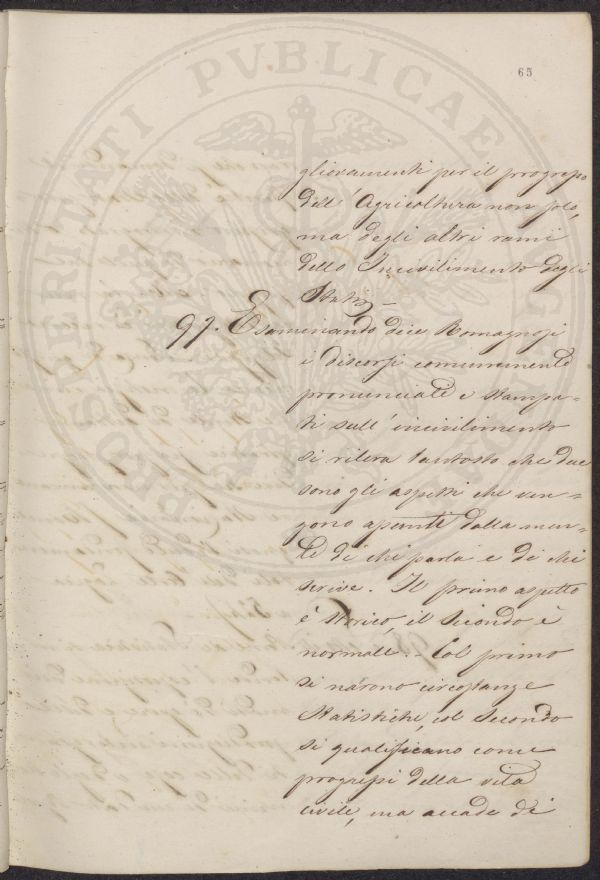 65
glioramenti per il progresso
dell'Agricoltura non solo,
ma degli altri rami
dello Incivilimento degli
Stati –
99. Esaminando dice Romagnosi
i discorsi comunemente
pronunciati e stampa-
ti sull'incivilimento
si rileva tantosto che due
sono gli aspetti che ven-
gono assunti dalla men-
te di chi parla e di chi
scrive. Il primo aspetto
è storico, il secondo è
normale. – Col primo
si narono circostanze
statistiche, col secondo
si qualificano come
progressi della vita
civile, ma accade di
PROSPERITATI PVBLICAE